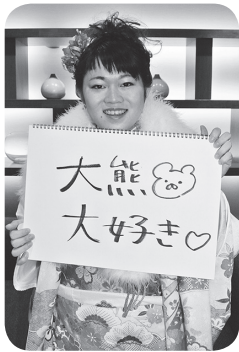 大熊
大好き♡